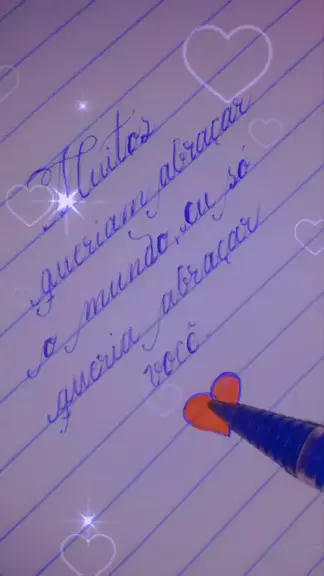 Muitos
queriam abraçar
o mundo, eu só
queria abraçar
você